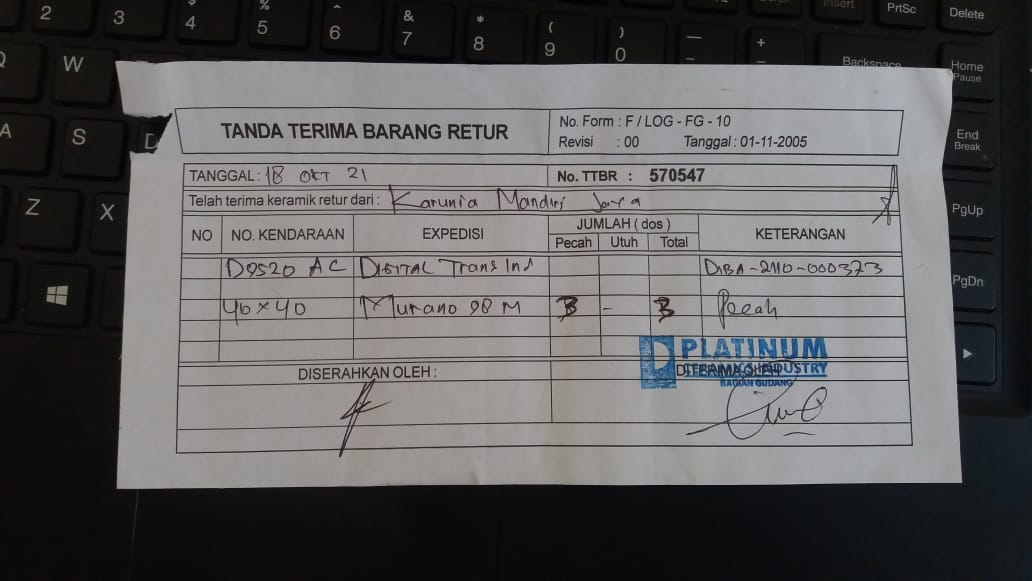 2 3 $ 4 % 5 ^ 6 & 7 * 8 ( 9 ) 0 — - + = Insert PrtSc Delete
Q W Backspace Home Pause
A S D End Break
Z X PgUp
PgDn
TANDA TERIMA BARANG RETUR
No. Form : F / LOG - FG - 10
Revisi : 00 Tanggal : 01-11-2005
TANGGAL : 18 OKT 21 No. TTBR : 570547
Telah terima keramik retur dari : Karunia Mandiri Jaya
NO NO. KENDARAAN EXPEDISI JUMLAH ( dos ) KETERANGAN
Pecah Utuh Total
D9520 AC DIGITAL Trans Ind DIBA-2110-000373
40 x 40 Murano 98 M 3 - 3 Pecah
PLATINUM
CERAMICS INDUSTRY
BAGIAN GUDANG
DISERAHKAN OLEH : DITERIMA OLEH